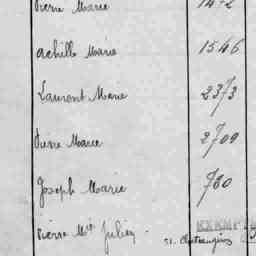 Pierre Marie 1472
Achille Marie 1546
Laurent Marie 2373
Pierre Marie 2709
Joseph Marie 760
Pierre Mie Julien - St.